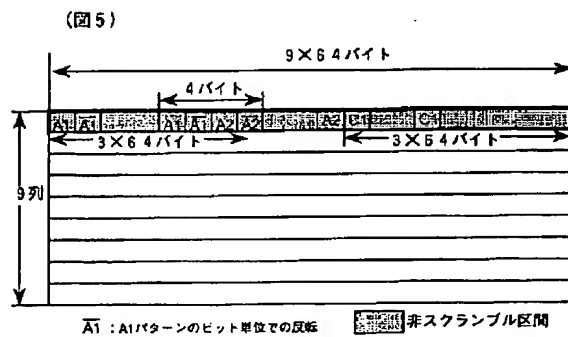 (図5)
9×64バイト
4バイト
A1 A̅1̅ A̅1̅ A̅1̅ A2 A̅2̅ A1 A2 C1 C1
3×64バイト 3×64バイト
9列
A̅1̅ : A1パターンのビット単位での反転 非スクランブル区間